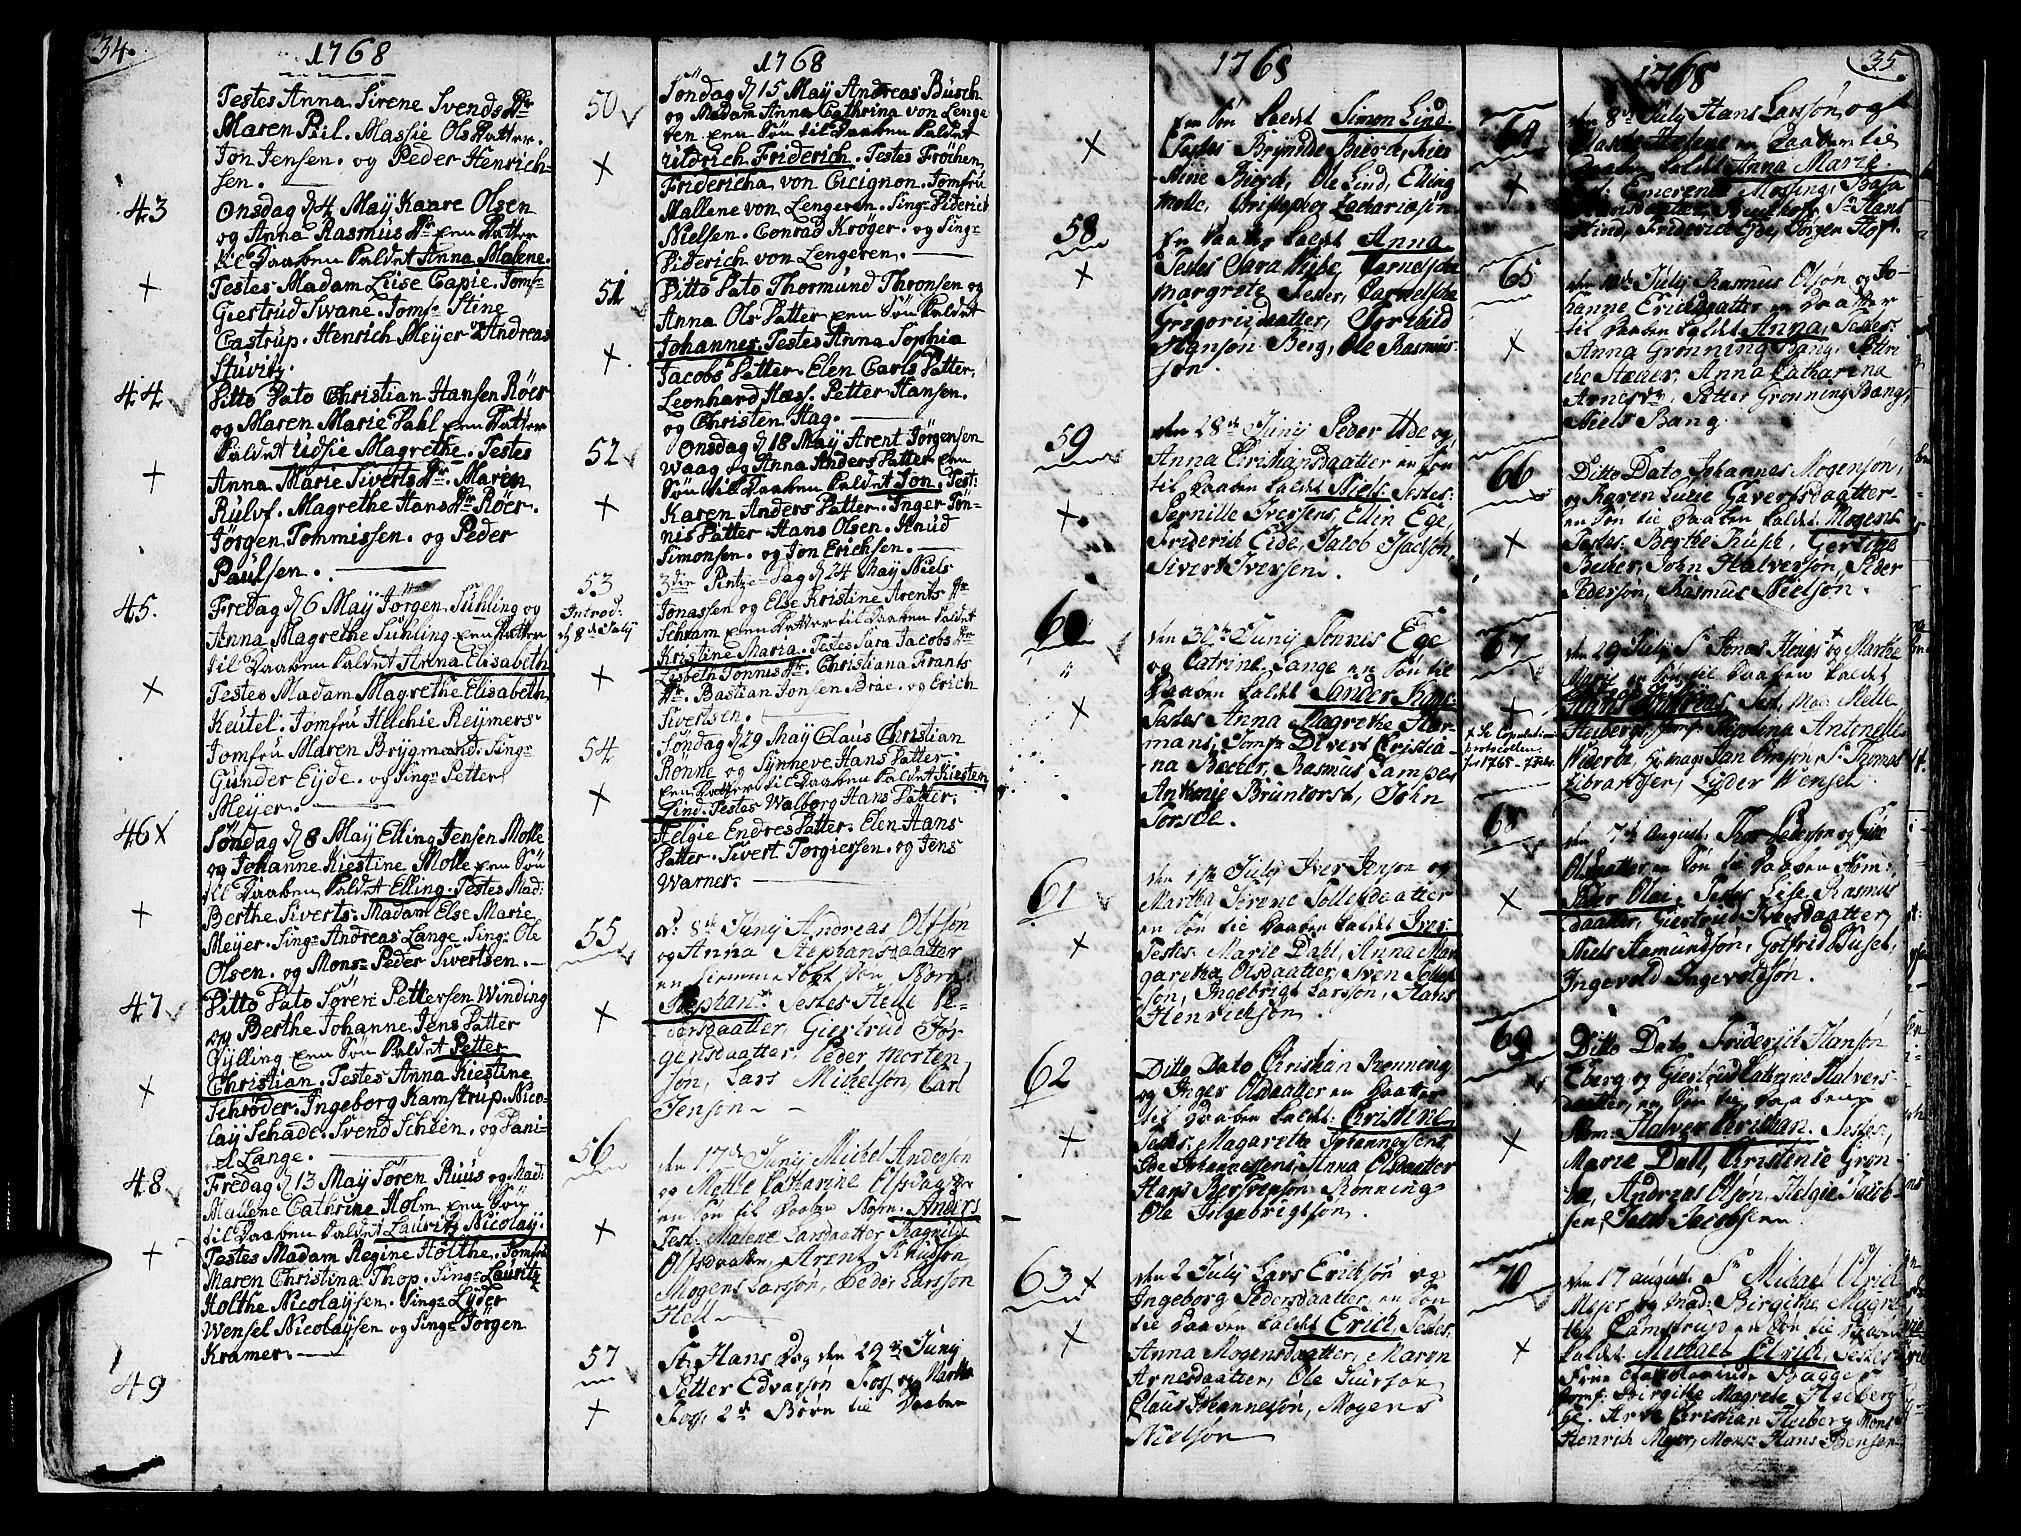 34.
1768
Testes Anna Sirene Svends Dr
Maren Piil. Massie Ols Datter.
Jon Jensen. og Peder Henrich-
sen.
43
Onsdag d 4 May Kaare Olsen
og Anna Rasmus Dr een Datter
til Daaben kaldet Anna Malene.
Testes Madam Liise Capie. Jomf:
Giertrud Swane. Jomf: Stine
Castrup. Henrich Meyer & Andreas
Stuvitz.
44
Ditto Dato Christian Hansen Röer
og Maren Marie Dahl een Datter
kaldet Udsie Magrethe. Testes
Anna Marie Siverts Dr. Maren
Rülvf. Magrethe Hans Dr Röer.
Jörgen Tommissen. og Peder
Paulsen.
45.
Fredag d 6 May Jörgen Sühling og
Anna Magrethe Sühling een Datter
til Daaben kaldet Anna Elisabeth
Testes Madam Magrethe Elisabeth
Keutel. Jomfru Helchie Reymers
Jomfru Maren Brygmand. Sing:
Günder Eyde. og Sing: Petter
Meyer.
46 x
Söndag d 8 May Elling Jensen Molle
og Johanne Kiestine Molle een Sön
til Daaben kaldet Elling. Testes Mad:
Berthe Siverts. Madam Else Marie
Meyer. Sing: Andreas Lange. Sing: Ole
Olsen. og Mons: Peder Sivertsen.
47
Ditto Dato Sören Pettersen Winding
og Berthe Johanne Jens Datter
Gylling een Sön kaldet Petter
Christian. Testes Anna Kiestine
Schröder. Ingeborg Kamstrup. Nico-
lay Schade. Svend Schöen. og Dani-
el Lange.
48
Fredag d 13 May Sören Ruus og Mad:
Mallene Cathrine Holm een Sön
til Daaben kaldet Lauritz Nicolay.
Testes Madam Regine Holthe. Jomfru
Maren Christina Thop. Sing: Lauritz
Holthe Nicolaysen. Sing: Lyder
Wensel Nicolaysen og Sing: Jörgen
Kramer.
49
1768
50
Söndag d 15 May Andreas Büsch
og Madam Anna Cathrina von Lenge
ren een Sön til Daaben kaldet
Uldrich Friderich. Testes Fröhen
Fridericha von Cicignon. Jomfru
Mallene von Lengeren. Sing: Diderich
Nielsen. Conrad Kröger. og Sing:
Diderich von Lengeren.
51
Ditto Dato Thormund Thronsen og
Anna Ols Datter een Sön kaldet
Johannes. Testes Anna Sophia
Jacobs Datter. Elen Carls Datter.
Leonhard Hæs. Petter Hansen.
og Christen Hag.
52
Onsdag d 18 May Arent Jörgensen
Waag og Anna Anders Datter een
Sön til Daaben kaldet Jon. Test:
Karen Anders Datter. Inger Tön-
nis Datter. Hans Olsen. Knud
Simonsen. og Jon Erichsen.
53
Introd:
d 8 de July
3die Pintze-Dag d 24 May Niels
Jonassen og Else Kristine Arents Dr
Schram een Datter til Daaben kaldet
Kristine Maria. Testes Sara Jacobs Dr
Lisbeth Tönnis Dr. Christiana Frants
Dr. Bastian Jonsen Brae. og Erich
Sivertsen.
54
Söndag d 29 May Claus Christian
Rönne og Synneve Hans Datter
een Datter til Daaben kaldet Kiesten
Lind. Testes Walborg Hans Datter.
Helgie Endres Datter. Elen Hans
Datter. Sivert Torgiersen. og Jens
Warner.
55
d. 8de Junij Andreas Olssön
og Anna Stephansdaatter
en hiemme döbt Sön Nom:
Stephan. Testes Hede Pe-
dersdaatter, Giertrud Jör-
gensdaatter, Peder Morten
søn, Lars Michelsøn, Carl
Jensøn
56
den 17de Junij Michel Andersen
og Mette Catharine Olsdaatter
en søn til Daaben Nom: Anders
Test: Malene Larsdaatter Ragnily
Olsdaatter Arent Knudsøn
Mogens Larsøn, Peder Larssøn
Hell
57
St. Hans Dag den 29de Junij
Petter Edvarsøn Fosf og Marthe
Fosf, 2de Børn til Daaben
1768
en Søn kaldet Simon Lind.
Testes Bryndte Bierck, Kies
tine Bierck, Ole Lind, Elling
Molle, Christopher Zachariasøn
58
En Daatter kaldet Anna
Testes Sara Vibe, Carnelscha
Margrete Feder, Carnelscha
Gregoriidaatter, Torchild
Hansøn Berg, Ole Rasmus-
søn.
59
den 28de Junij Peder Ude og
Anna Christiansdaatter en søn
til Daaben kaldet Niels. Testes:
Pernille Iversens, Ellin Ege,
Friderich Eide, Jacob Isachsøn,
Sivert Iversen.
60
den 30te Junij Tønnis Ege
og Catrine Lange en søn til
Daaben kaldet Sander Hans
Testes Anna Magrethe Har-
mans, Jomfr Divert Christia-
na Becker, Rasmus Campes
Anthonie Bruntorst, John
Torsde.
61
den 1ste Julij Iver Jensøn og
Martha Serene Sollesdaatter
en søn til Daaben kaldet Iver.
Testes: Marie Dahl, Anna Mar
garetha Olsdaatter, Sven Solles
søn, Ingebrigt Larssøn, Hans
Henrichsøn.
62
Ditto Dato Christian Rønning
og Inger Olsdaatter en Daatter
til Daaben kaldet: Christine
Testes: Magarethe Johannessens
Ide Johannessens, Anna Olsdaatter
Hans Berstensøn Rønning
Ole Ingebrigtsøn.
63 x
den 2 Julij Lars Erichsøn og
Ingeborg Pedersdaatter, en søn
til Daaben kaldet Erich. Testes:
Anna Mogensdaatter, Maren
Arnesdaatter, Ole Iversøn
Claus Johannesøn, Mogens
Nielsøn
35.
1768
64
den 8de Julij Hans Larssøn og
Maste Helene en Daatter til
Daaben kaldet Anna Marie.
Emerente Mossing,
Hind, Friderich Eide, Jørgen Hop.
65
den 10de Julij Rasmus Olsøn og Jo-
hanne Erichsdaatter en Daatter
til Daaben kaldet Anna. Testes:
Anna Grønning Bang, Pettri
che Stæuer, Anna Catharina
Petter Grønning Bang,
Niels Bang.
66
Ditto Dato Johannes Mogensøn,
og Karen Lucie Gavertsdaatter
en søn til Daaben kaldet Mogens
Testes: Berthe Kuse, Gertine
Becker, John Halversøn, Peder
Pedersøn, Rasmus Nielsøn.
67
x Se Copulations
protocollen
for 1765 - 7 Febr
den 29 Julij Sr Jonas Heigs x og Marthe
Marie en søn til Daaben kaldet
Test. Mad. Melle
Heiberg, Jomf: Antonelle
Widerøe, Jan Omsøn, Sr Thomas
Librantzer, Lyder Wensel.
68
den 7de August. Thor Pedersøn og Gure
Olsdaatter en Søn til Daaben Nom:
Peder Olai. Testes Lise Rasmus
daatter, Giertrud Iversdaatter
Niels Asmundsøn, Gotfrid Tusel,
Ingevold Ingevoldsøn.
69
Ditto Dato Friderich Hansøn
Eberg og Giertrud Catrine Halvers-
daatter, en søn til Daaben
Nom: Halver Christian. Testes,
Marie Dall, Christenie Grøn-
be, Andreas Olsøn, Helgie Jacob-
sen, Jacob Jacobsen.
70
den 17 August. Sr Michael Ulrich
Mejer og Mad: Birgithe Magre-
the Camstrup en søn til Daaben
kaldet Michael Ulrich. Testes
Frue Bagge
Jomf: Birgithe Magrete Heiberg
Hr. Arve Christian Heiberg Mons:
Henrich Mejer, Mons: Hans Bensen